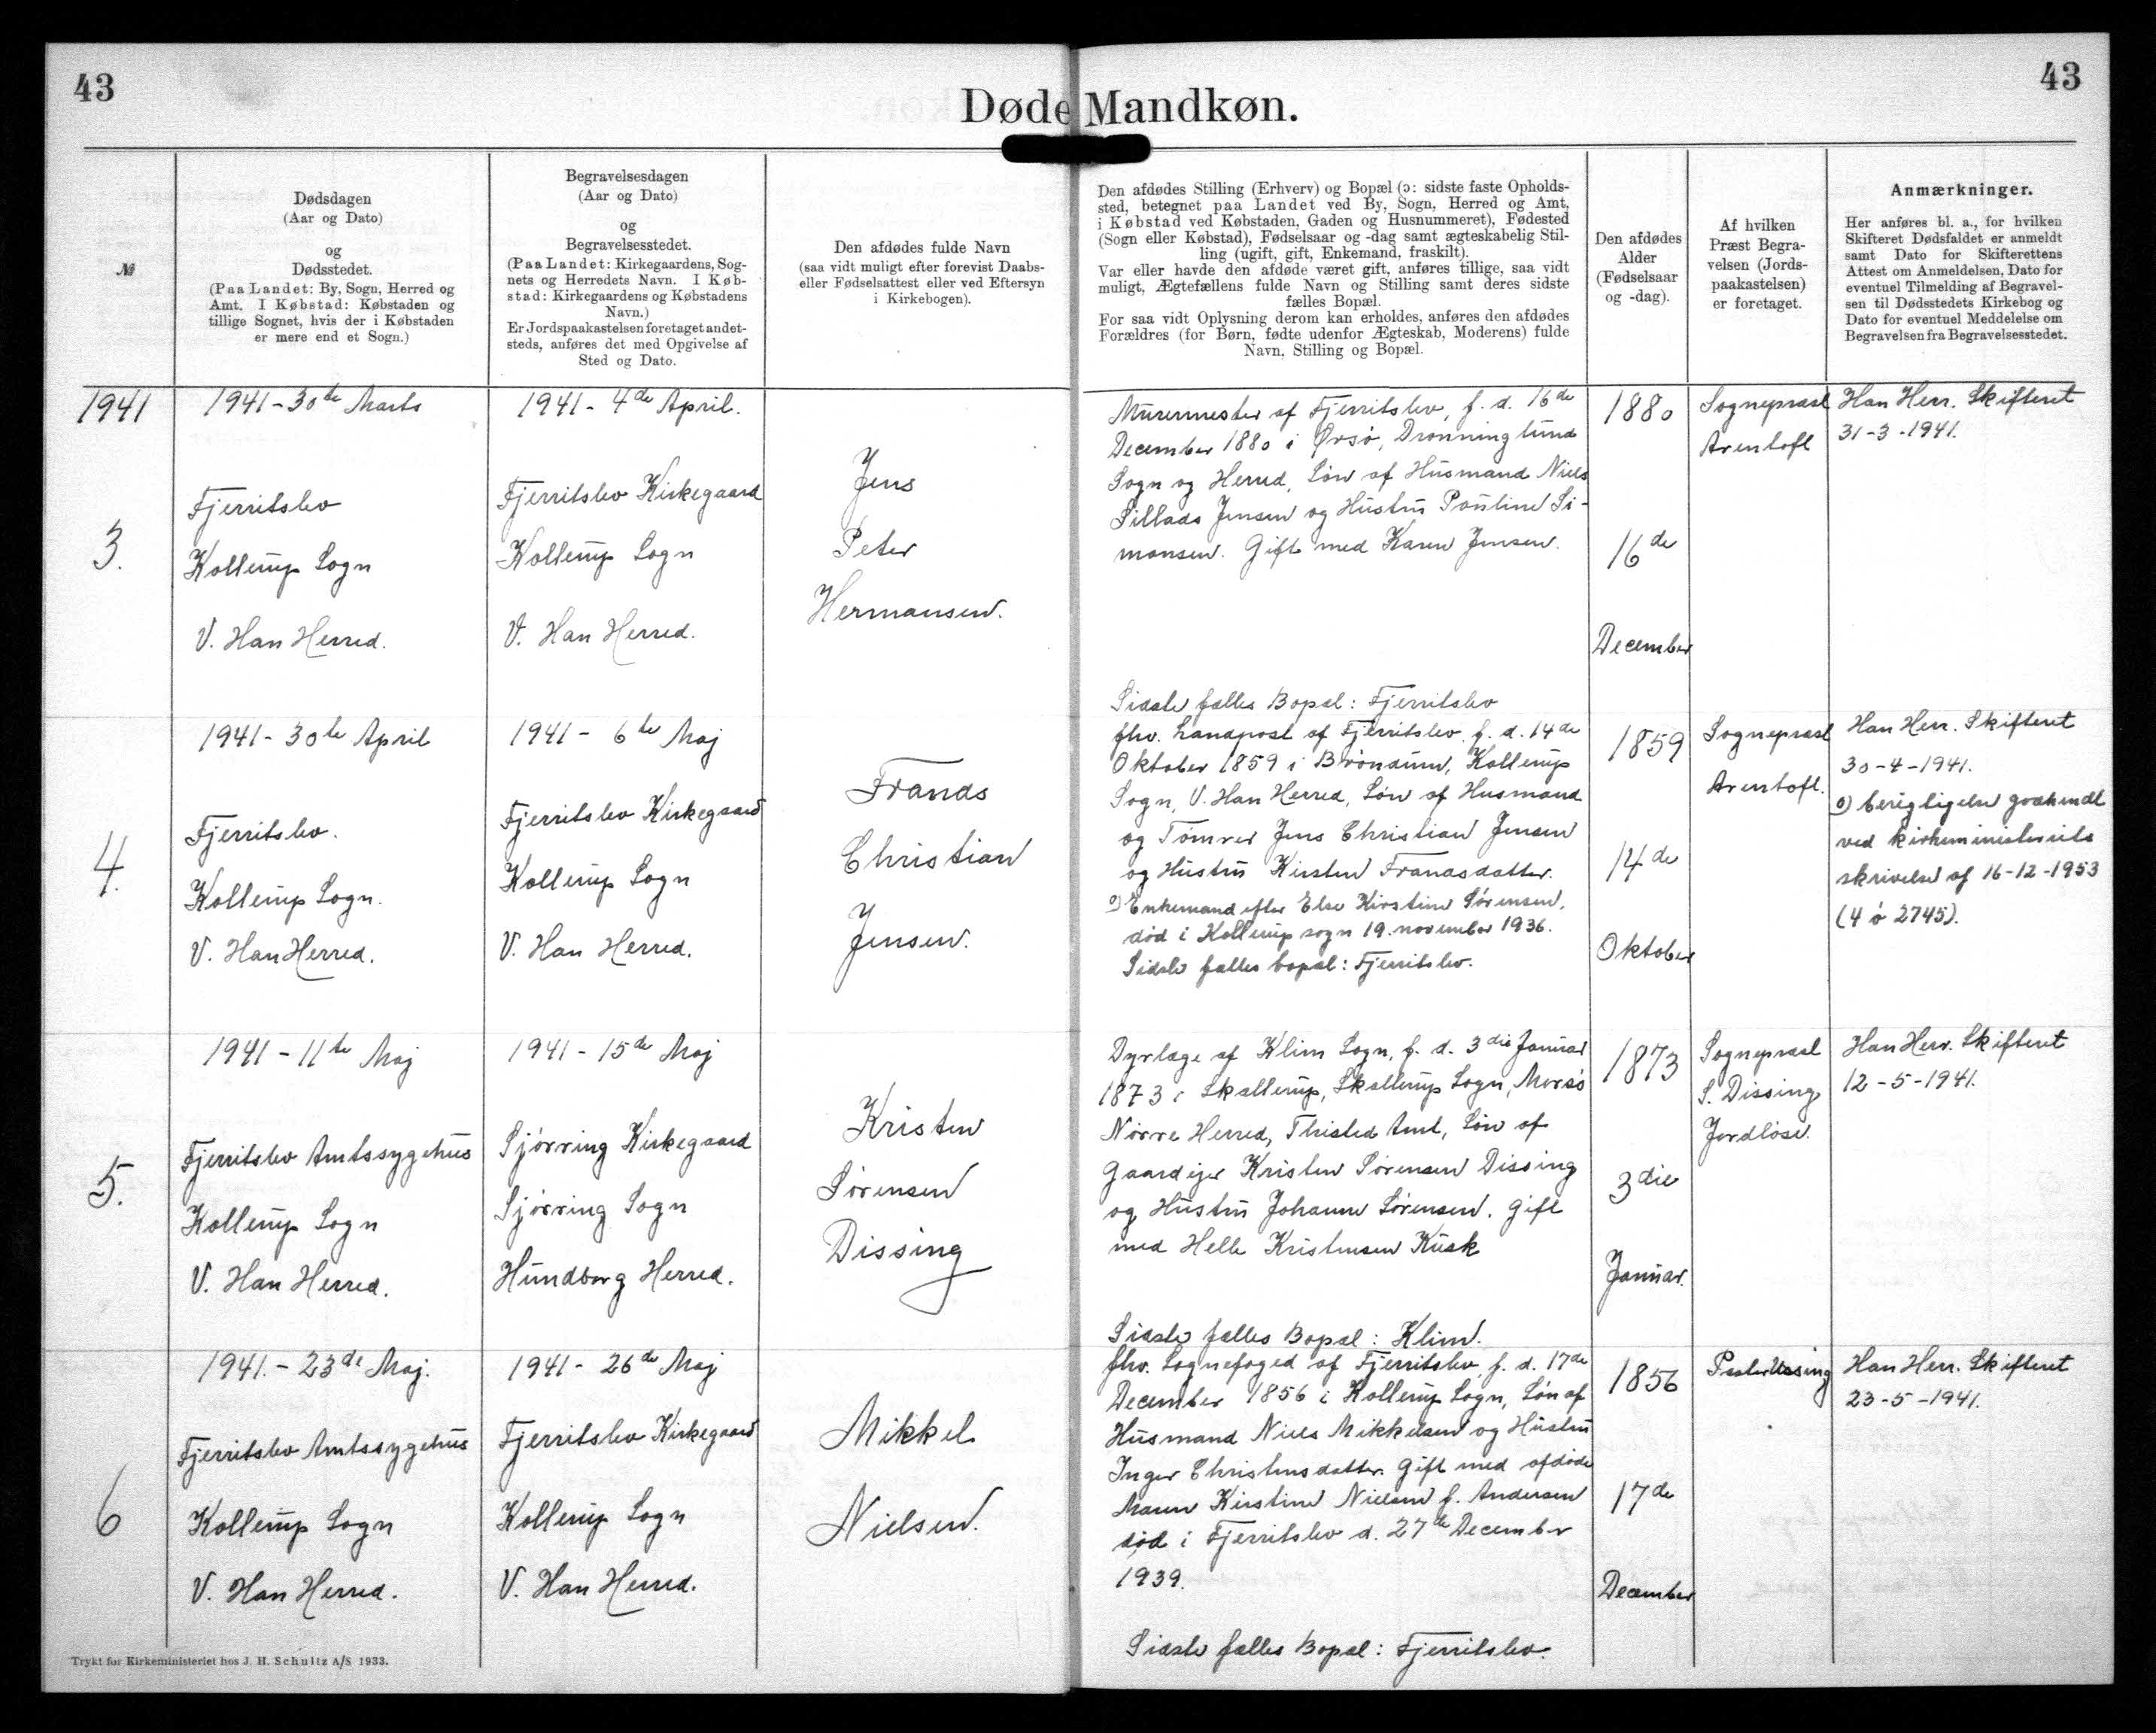 43
43
Døde Mandkøn.
№
Dødsdagen
(Aar og Dato)
og
Dødsstedet.
(Paa Landet: By, Sogn, Herred og
Amt. I Købstad: Købstaden og
tillige Sognet, hvis der i Købstaden
er mere end et Sogn.)
Begravelsesdagen
(Aar og Dato)
og
Begravelsesstedet.
(Paa Landet: Kirkegaardens, Sog-
nets og Herredets Navn. I Køb-
stad: Kirkegaardens og Købstadens
Navn.)
Er Jordspaakastelsen foretaget andet-
steds, anføres det med Opgivelse af
Sted og Dato.
Den afdødes fulde Navn
(saa vidt muligt efter forevist Daabs-
eller Fødselsattest eller ved Eftersyn
i Kirkebogen).
Den afdødes Stilling (Erhverv) og Bopæl (ɔ: sidste faste Opholds-
sted, betegnet paa Landet ved By, Sogn, Herred og Amt,
i Købstad ved Købstaden, Gaden og Husnummeret), Fødested
(Sogn eller Købstad), Fødselsaar og -dag samt ægteskabelig Stil-
ling (ugift, gift, Enkemand, fraskilt).
Var eller havde den afdøde været gift, anføres tillige, saa vidt
muligt, Ægtefællens fulde Navn og Stilling samt deres sidste
fælles Bopæl.
For saa vidt Oplysning derom kan erholdes, anføres den afdødes
Forældres (for Børn, fødte udenfor Ægteskab, Moderens) fulde
Navn, Stilling og Bopæl.
Den afdødes
Alder
(Fødselsaar
og -dag).
Af hvilken
Præst Begra-
velsen (Jords-
paakastelsen)
er foretaget.
Anmærkninger.
Her anføres bl. a., for hvilken
Skifteret Dødsfaldet er anmeldt
samt Dato for Skifterettens
Attest om Anmeldelsen, Dato for
eventuel Tilmelding af Begravel-
sen til Dødsstedets Kirkebog og
Dato for eventuel Meddelelse om
Begravelsen fra Begravelsesstedet.
1941
3.
1941 - 30te Marts
Fjerritslev
Kollerup Sogn
V. Han Herred.
1941 - 4de April.
Fjerritslev Kirkegaard
Kollerup Sogn
V. Han Herred.
Jens
Peter
Hermansen.
Murermester af Fjerritslev, f. d. 16de
December 1880 i Ørsø, Dronninglund
Sogn og Herred, Søn af Husmand Niels
Sillads Jensen og Hustru Pouline Si-
monsen. Gift med Karen Jensen.
Sidste fælles Bopæl: Fjerritslev
1880
16de
December
Sognepræst
Arentoft
Han Herr. Skifteret
31-3-1941.
4.
1941 - 30te April
Fjerritslev.
Kollerup Sogn.
V. Han Herred.
1941 - 6te Maj
Fjerritslev Kirkegaard
Kollerup Sogn
V. Han Herred.
Frands
Christian
Jensen.
fhv. Landpost af Fjerritslev. f. d. 14de
Oktober 1859 i Brøndum, Kollerup
Sogn, V. Han Herred, Søn af Husmand
og Tømrer Jens Christian Jensen
og Hustru Kirsten Frandsdatter.
o) Enkemand efter Else Kirstine Sørensen,
død i Kollerup sogn 19. november 1936.
Sidste fælles bopæl: Fjerritslev.
1859
14de
Oktober
Sognepræst
Arentoft.
Han Herr. Skifteret
30-4-1941.
o) berigtigelse godkendt
ved kirkeministeriets
skrivelse af 16-12-1953
(4 ø 2745).
5.
1941 - 11te Maj
Fjerritslev Amtssygehus
Kollerup Sogn
V. Han Herred.
1941 - 15de Maj
Sjørring Kirkegaard
Sjørring Sogn
Hundborg Herred.
Kristen
Sørensen
Dissing
Dyrlæge af Klim Sogn, f. d. 3die Januar
1873 i Skallerup, Skallerup Sogn, Morsø
Nørre Herred, Thisted Amt, Søn af
Gaardejer Kristen Sørensen Dissing
og Hustru Johanne Sørensen. Gift
med Helle Kristensen Kusk
Sidste fælles Bopæl: Klim.
1873
3die
Januar.
Sognepræst
S. Dissing
Jordløse.
Han Herr. Skifteret
12-5-1941.
6
1941. - 23de Maj.
Fjerritslev Amtssygehus
Kollerup Sogn
V. Han Herred.
1941 - 26de Maj
Fjerritslev Kirkegaard
Kollerup Sogn
V. Han Herred.
Mikkel
Nielsen.
fhv. Sognefoged af Fjerritslev, f. d. 17de
December 1856 i Kollerup Sogn, Søn af
Husmand Niels Mikkelsen og Hustru
Inger Christensdatter. Gift med afdøde
Maren Kirstine Nielsen f. Andersen
død i Fjerritslev d. 27de December
1939.
Sidste fælles Bopæl: Fjerritslev.
1856
17de
December
Han Herr. Skifteret
23-5-1941.
Trykt for Kirkeministeriet hos J. H. Schultz A/S 1933.